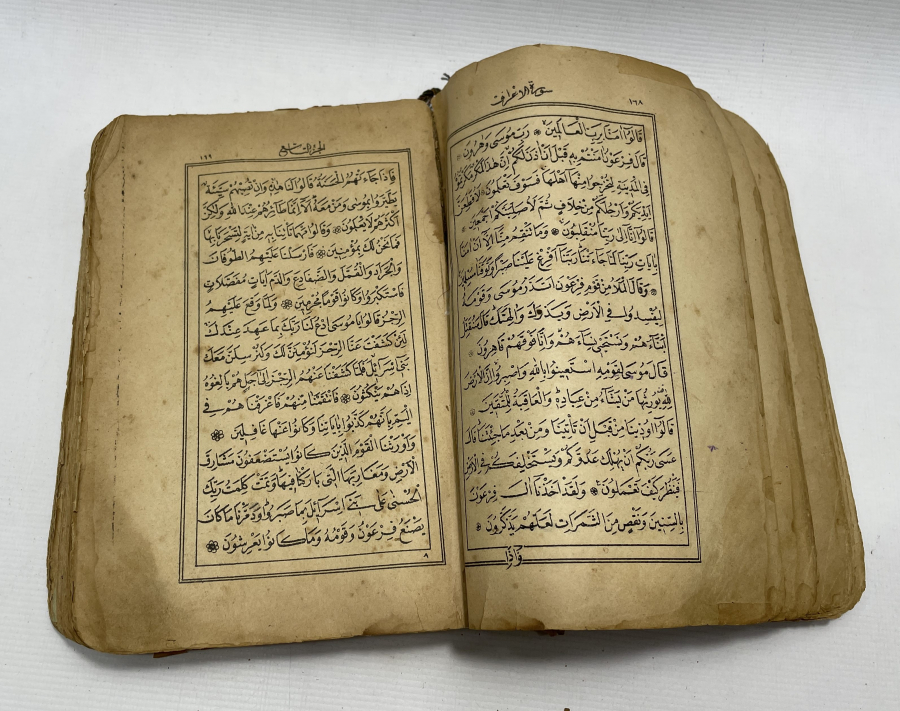 سورة الاعراف ١٦٨
قَالُوا اٰمَنَّا بِرَبِّ الْعَالَمِينَ ۞ رَبِّ مُوسٰى وَهٰرُونَ ۞
قَالَ فِرْعَوْنُ اٰمَنْتُمْ بِهِ قَبْلَ اَنْ اٰذَنَ لَكُمْ اِنَّ هٰذَا لَمَكْرٌ مَكَرْتُمُوهُ
فِى الْمَدِينَةِ لِتُخْرِجُوا مِنْهَا اَهْلَهَا فَسَوْفَ تَعْلَمُونَ ۞ لَاُقَطِّعَنَّ
اَيْدِيَكُمْ وَاَرْجُلَكُمْ مِنْ خِلَافٍ ثُمَّ لَاُصَلِّبَنَّكُمْ اَجْمَعِينَ ۞
قَالُوا اِنَّا اِلٰى رَبِّنَا مُنْقَلِبُونَ ۞ وَمَا تَنْقِمُ مِنَّا اِلَّا اَنْ اٰمَنَّا
بِاٰيَاتِ رَبِّنَا لَمَّا جَاءَتْنَا رَبَّنَا اَفْرِغْ عَلَيْنَا صَبْرًا وَتَوَفَّنَا مُسْلِمِينَ
۞ وَقَالَ الْمَلَأُ مِنْ قَوْمِ فِرْعَوْنَ اَتَذَرُ مُوسٰى وَقَوْمَهُ
لِيُفْسِدُوا فِى الْاَرْضِ وَيَذَرَكَ وَاٰلِهَتَكَ قَالَ سَنُقَتِّلُ
اَبْنَاءَهُمْ وَنَسْتَحْيِى نِسَاءَهُمْ وَاِنَّا فَوْقَهُمْ قَاهِرُونَ ۞
قَالَ مُوسٰى لِقَوْمِهِ اسْتَعِينُوا بِاللّٰهِ وَاصْبِرُوا اِنَّ الْاَرْضَ
لِلّٰهِ يُورِثُهَا مَنْ يَشَاءُ مِنْ عِبَادِهِ وَالْعَاقِبَةُ لِلْمُتَّقِينَ ۞
قَالُوا اُوذِينَا مِنْ قَبْلِ اَنْ تَأْتِيَنَا وَمِنْ بَعْدِ مَا جِئْتَنَا قَالَ
عَسٰى رَبُّكُمْ اَنْ يُهْلِكَ عَدُوَّكُمْ وَيَسْتَخْلِفَكُمْ فِى الْاَرْضِ
فَيَنْظُرَ كَيْفَ تَعْمَلُونَ ۞ وَلَقَدْ اَخَذْنَا اٰلَ فِرْعَوْنَ
بِالسِّنِينَ وَنَقْصٍ مِنَ الثَّمَرَاتِ لَعَلَّهُمْ يَذَّكَّرُونَ ۞
وَاِذَا
الجزء التاسع ١٦٩
فَاِذَا جَاءَتْهُمُ الْحَسَنَةُ قَالُوا لَنَا هٰذِهِ وَاِنْ تُصِبْهُمْ سَيِّئَةٌ
يَطَّيَّرُوا بِمُوسٰى وَمَنْ مَعَهُ اَلَا اِنَّمَا طَائِرُهُمْ عِنْدَ اللّٰهِ وَلٰكِنَّ
اَكْثَرَهُمْ لَا يَعْلَمُونَ ۞ وَقَالُوا مَهْمَا تَأْتِنَا بِهِ مِنْ اٰيَةٍ لِتَسْحَرَنَا بِهَا
فَمَا نَحْنُ لَكَ بِمُؤْمِنِينَ ۞ فَاَرْسَلْنَا عَلَيْهِمُ الطُّوفَانَ
وَالْجَرَادَ وَالْقُمَّلَ وَالضَّفَادِعَ وَالدَّمَ اٰيَاتٍ مُفَصَّلَاتٍ
فَاسْتَكْبَرُوا وَكَانُوا قَوْمًا مُجْرِمِينَ ۞ وَلَمَّا وَقَعَ عَلَيْهِمُ
الرِّجْزُ قَالُوا يَا مُوسَى ادْعُ لَنَا رَبَّكَ بِمَا عَهِدَ عِنْدَكَ
لَئِنْ كَشَفْتَ عَنَّا الرِّجْزَ لَنُؤْمِنَنَّ لَكَ وَلَنُرْسِلَنَّ مَعَكَ
بَنِى اِسْرَائِلَ فَلَمَّا كَشَفْنَا عَنْهُمُ الرِّجْزَ اِلٰى اَجَلٍ هُمْ بَالِغُوهُ
اِذَا هُمْ يَنْكُثُونَ ۞ فَانْتَقَمْنَا مِنْهُمْ فَاَغْرَقْنَاهُمْ فِى
الْيَمِّ بِاَنَّهُمْ كَذَّبُوا بِاٰيَاتِنَا وَكَانُوا عَنْهَا غَافِلِينَ ۞
وَاَوْرَثْنَا الْقَوْمَ الَّذِينَ كَانُوا يُسْتَضْعَفُونَ مَشَارِقَ
الْاَرْضِ وَمَغَارِبَهَا الَّتِى بَارَكْنَا فِيهَا وَتَمَّتْ كَلِمَتُ رَبِّكَ
الْحُسْنٰى عَلٰى بَنِى اِسْرَائِلَ بِمَا صَبَرُوا وَدَمَّرْنَا مَا كَانَ
يَصْنَعُ فِرْعَوْنُ وَقَوْمُهُ وَمَا كَانُوا يَعْرِشُونَ ۞
٨